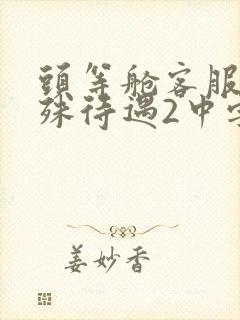 頭等舱客服
殊待遇2中字
姜妙香